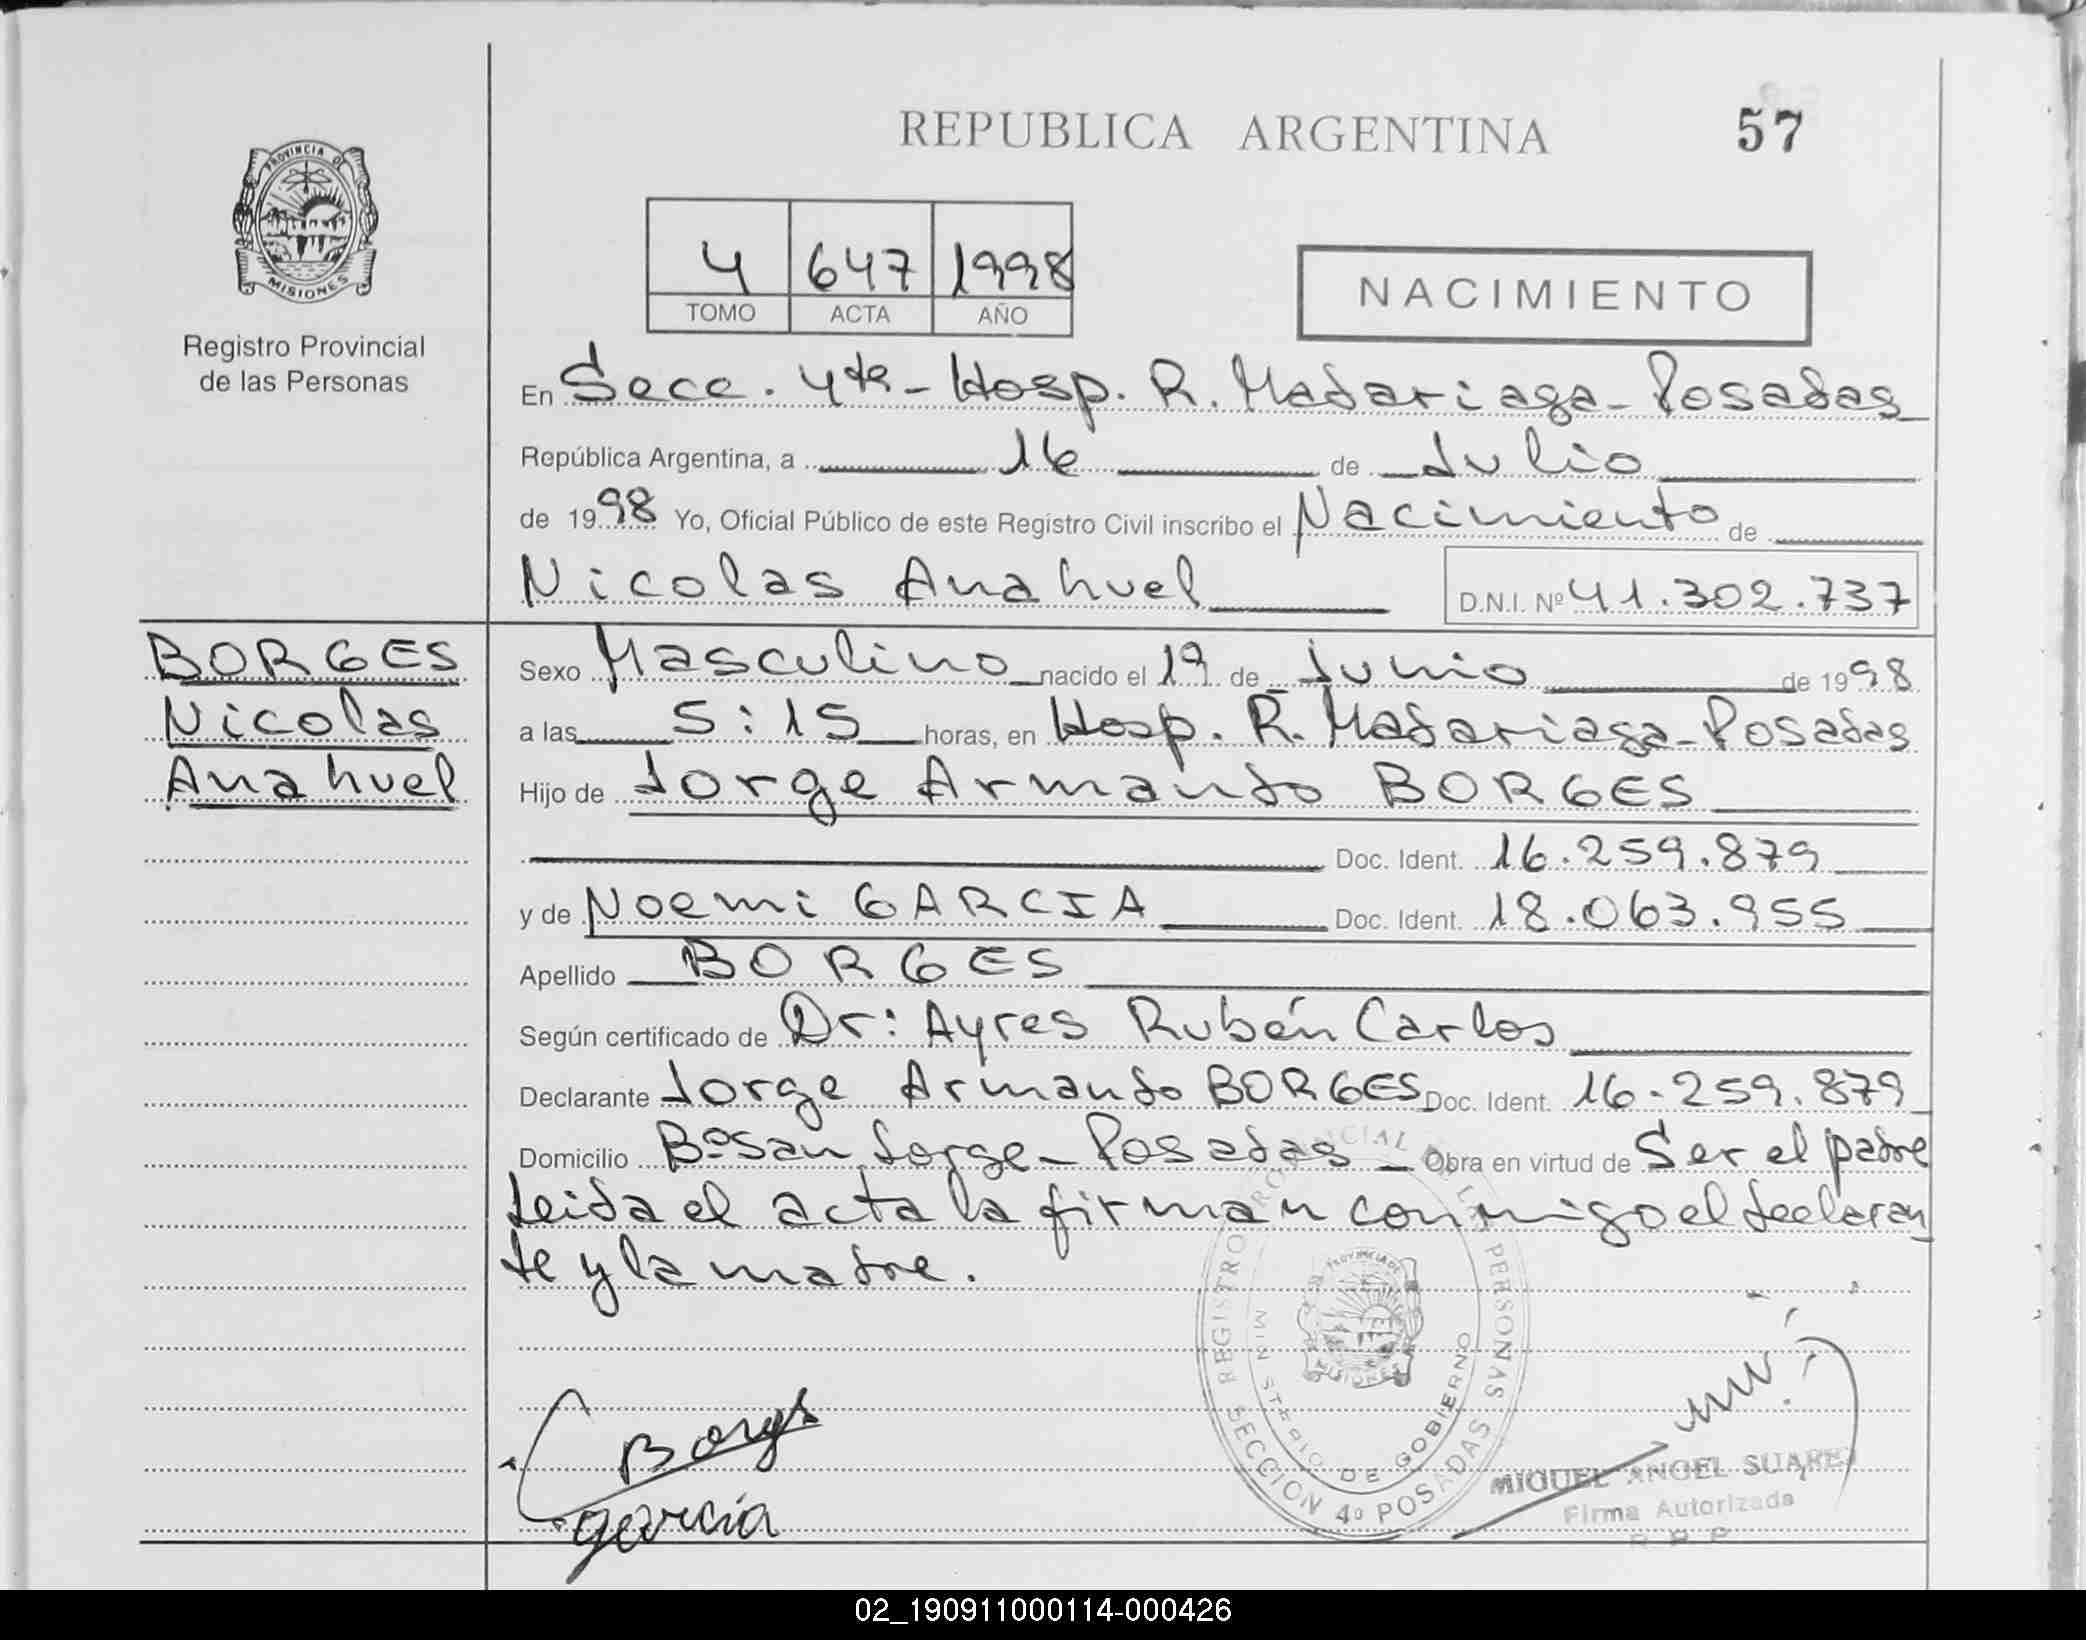 REPUBLICA ARGENTINA
57
PROVINCIA DE
MISIONES
Registro Provincial
de las Personas
4 647 1998
TOMO ACTA AÑO
NACIMIENTO
En Secc. 4ta - Hosp. R. Madariaga - Posadas
República Argentina, a 16 de Julio
de 1998 Yo, Oficial Público de este Registro Civil inscribo el Nacimiento de
Nicolas Anahuel D.N.I. Nº 41.302.737
BORGES
Nicolas
Anahuel
Sexo Masculino nacido el 19 de Junio de 1998
a las 5:15 horas, en Hosp. R. Madariaga - Posadas
Hijo de Jorge Armando BORGES
Doc. Ident. 16.259.879
y de Noemi GARCIA Doc. Ident. 18.063.955
Apellido BORGES
Según certificado de Dr: Ayres Rubén Carlos
Declarante Jorge Armando BORGES Doc. Ident. 16.259.879
Domicilio Bº San Jorge - Posadas - Obra en virtud de Ser el padre
Leida el acta la firman conmigo el declaran
te y la madre.
REGISTRO PROVINCIAL DE LAS PERSONAS
MINISTERIO DE GOBIERNO
PROVINCIA DE
MISIONES
SECCION 4º POSADAS
Borges
garcia
MIGUEL ANGEL SUAREZ
Firma Autorizada
02_190911000114-000426